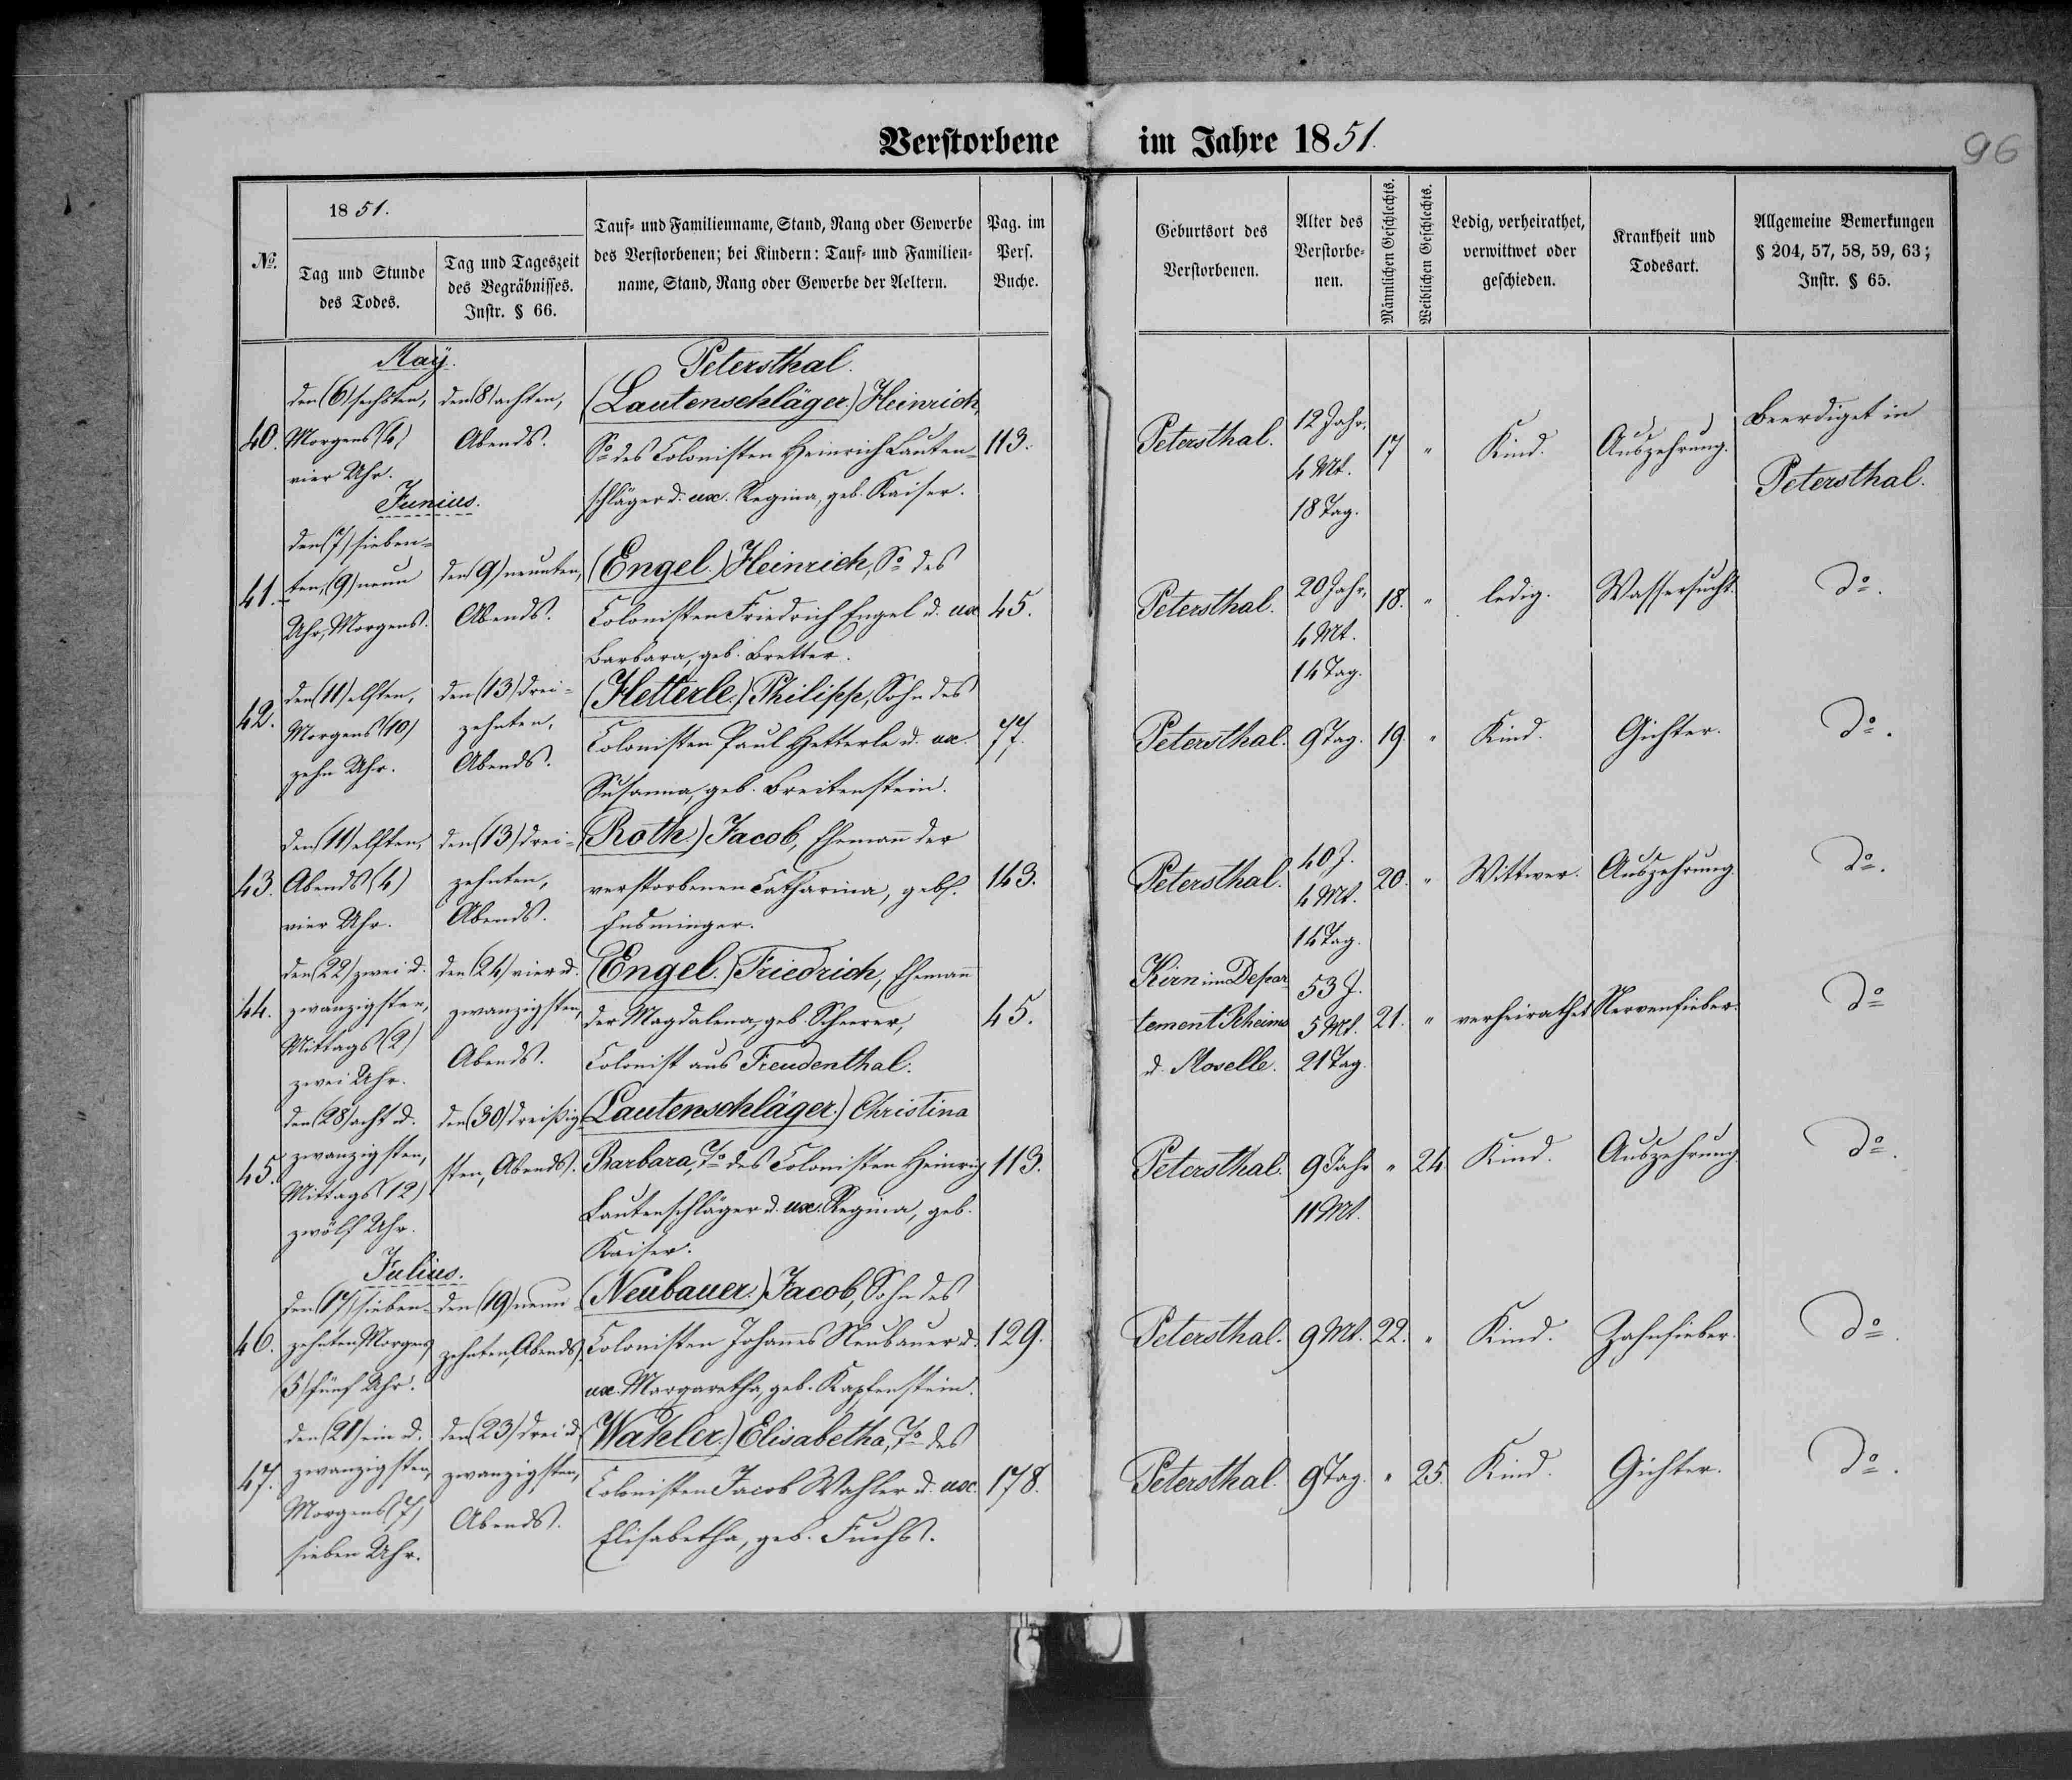 Verstorbene im Jahre 1851.
96
No.
1851.
Tag und Stunde
des Todes.
Tag und Tageszeit
des Begräbnisses.
Instr. § 66.
Tauf- und Familienname, Stand, Rang oder Gewerbe
des Verstorbenen; bei Kindern: Tauf- und Familien-
name, Stand, Rang oder Gewerbe der Aeltern.
Pag. im
Pers.
Buche.
Geburtsort des
Verstorbenen.
Alter des
Verstorbe-
nen.
Männlichen Geschlechts.
Weiblichen Geschlechts.
Ledig, verheirathet,
verwittwet oder
geschieden.
Krankheit und
Todesart.
Allgemeine Bemerkungen
§ 204, 57, 58, 59, 63;
Instr. § 65.
May.
Petersthal.
40.
den (6) sechsten,
Morgens (4)
vier Uhr.
den (8) achten,
Abends.
(Lautenschläger.) Heinrich,
So des Colonisten Heinrich Lauten-
schläger u. ux. Regina, geb. Kaiser.
113.
Petersthal.
12 Jahr,
4 Mt.
18 Tag.
17
"
Kind.
Auszehrung.
Beerdiget in
Petersthal.
Junius.
41.
den (7) sieben-
ten, (9) neun
Uhr, Morgens.
den (9) neunten,
Abends.
(Engel.) Heinrich, So des
Colonisten Friedrich Engel u. ux
Barbara, geb. Bretter.
45.
Petersthal.
20 Jahr,
4 Mt.
14 Tag.
18.
"
ledig.
Wassersucht.
do.
42.
den (11) elften,
Morgens (10)
zehn Uhr.
den (13) drei-
zehnten,
Abends.
(Hetterle.) Philipp, Sohn des
Colonisten Paul Hetterle u. ux.
Susanna, geb. Breitenstein.
77.
Petersthal.
9 Tag.
19.
"
Kind.
Gichter.
do.
43.
den (11) elften,
Abends (4)
vier Uhr.
den (13) drei-
zehnten,
Abends.
(Roth.) Jacob, Ehemann der
verstorbenen Catharina, geb.
Ensminger.
143.
Petersthal.
40 J.
4 Mt.
14 Tag.
20.
"
Wittwer.
Auszehrung.
do.
44.
den (22) zwei u.
zwanzigsten,
Mittags (2)
zwei Uhr.
den (24) vier u.
zwanzigsten,
Abends.
(Engel.) Friedrich, Ehemann
der Magdalena, geb. Scheerer,
Colonist aus Freudenthal.
45.
Kirn im Depar
tement Rheims
u. Moselle.
53 J.
5 Mt.
21 Tag.
21.
"
verheirathet
Nervenfieber.
do
45.
den (28) acht u.
zwanzigsten,
Mittags (12)
zwölf Uhr.
den (30) dreißig-
sten, Abends.
(Lautenschläger.) Christina
Barbara, To des Colonisten Heinrich
Lautenschläger u. ux. Regina, geb.
Kaiser.
113.
Petersthal.
9 Jahr
11 Mt.
"
24
Kind.
Auszehrung.
do.
Julius.
46.
den (17) sieben-
zehnten Morgens
(5) fünf Uhr.
den (19) neun-
zehnten, Abends.
(Neubauer.) Jacob, Sohn des
Colonisten Johannes Neubauer u.
ux. Margaretha, geb. Kapfenstein.
129.
Petersthal.
9 Mt.
22.
"
Kind.
Zahnfieber.
do.
47.
den (21) ein u.
zwanzigsten,
Morgens (7)
sieben Uhr.
den (23) drei u.
zwanzigsten,
Abends.
(Wahler.) Elisabetha, To des
Colonisten Jacob Wahler u. ux.
Elisabetha, geb. Fuchs.
178.
Petersthal.
9 Tag.
"
25.
Kind.
Gichter.
do.